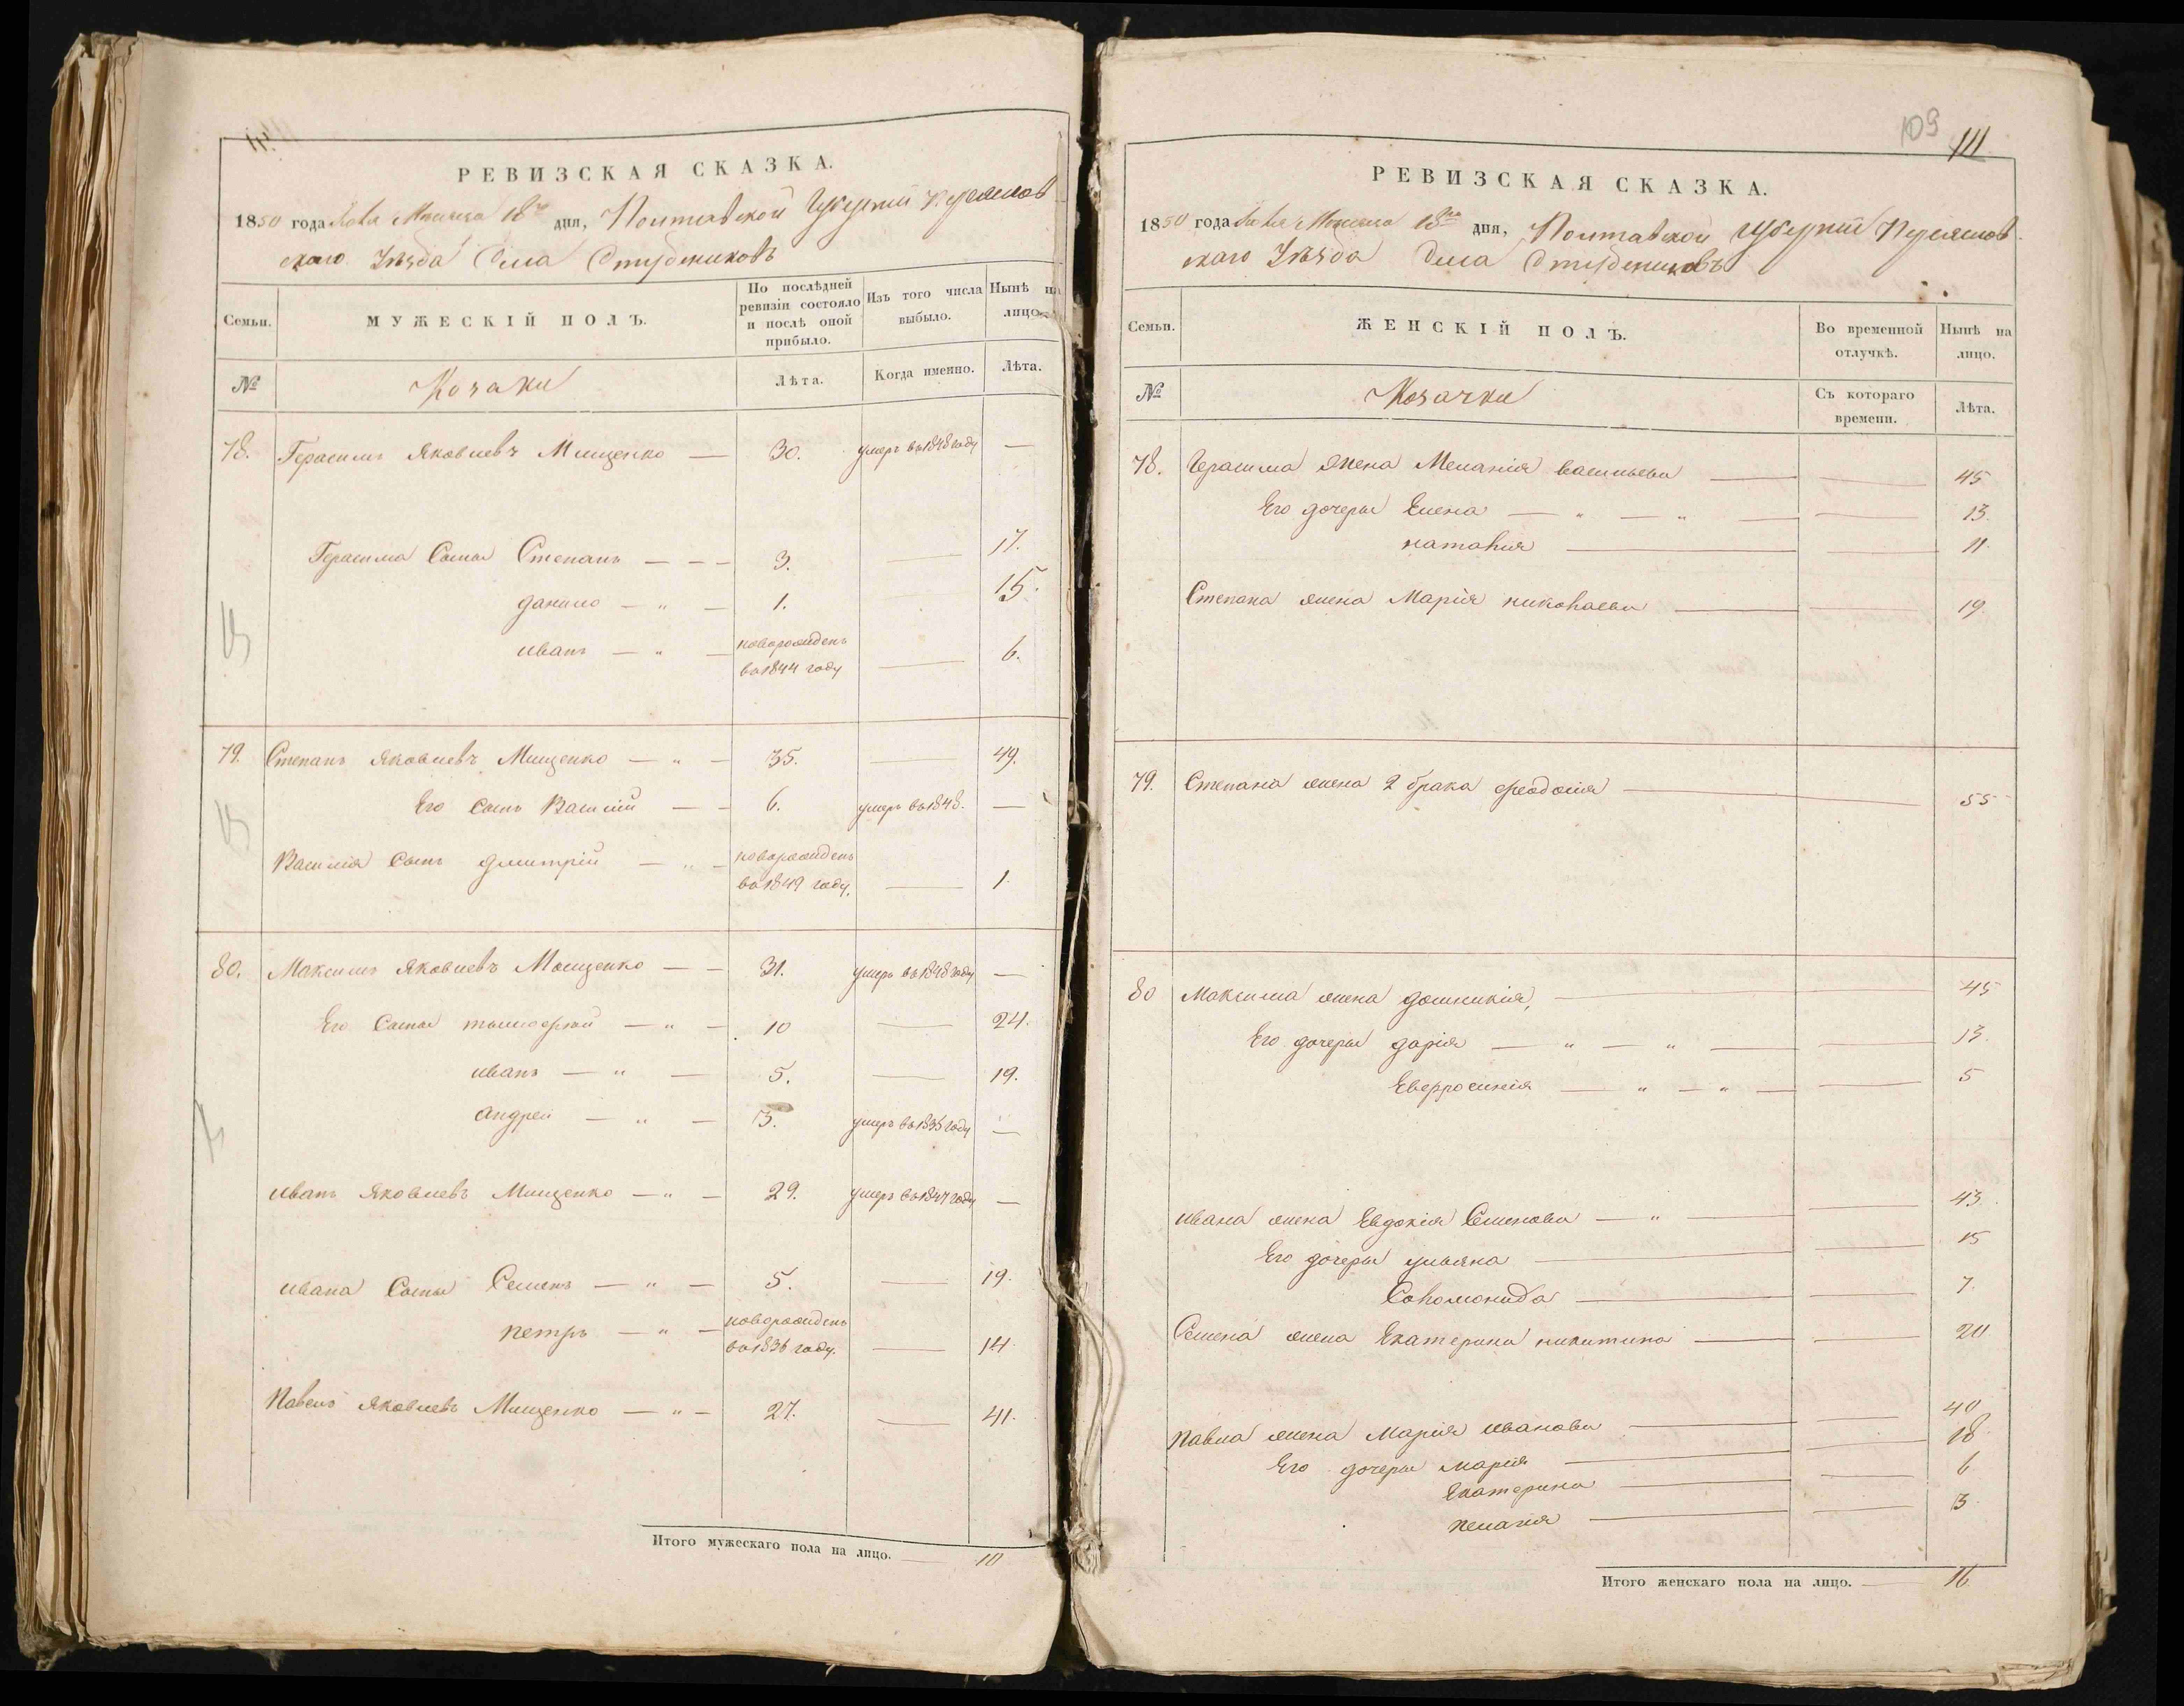 РЕВИЗСКАЯ СКАЗКА.
1850 года Мѣсяца 18го дня, Полтавской Губерніи Переяслов
скаго Уѣзда Села Студениковъ
Семьи.
МУЖЕСКІЙ ПОЛЪ.
По послѣдней ревизіи состояло и послѣ оной прибыло.
Изъ того числа выбыло.
Нынѣ на лицо.
№
Козаки
Лѣта.
Когда именно.
Лѣта.
78. Герасимъ Яковлевъ Мищенко — 30. умеръ въ 1848 году —
Герасима Сыны Степанъ — — — 3. — 17.
данило — „ — 1. 15.
иванъ — „ — новорожденъ въ 1844 году — 6.
79. Степанъ Яковлевъ Мищенко — „ — 35. — 49.
Его Сынъ Василій — — 6. умеръ въ 1848. —
Василія Сынъ дмитрій — „ — новорожденъ въ 1849 году. — 1.
80. Максимъ Яковлевъ Мищенко — — 31. умеръ въ 1848 году —
Его Сыны — „ — 10 — 24.
иванъ — „ — 5. — 19.
андрей — „ — 3. умеръ въ 1836 году —
иванъ Яковлевъ Мищенко — „ — 29. умеръ въ 1847 году —
ивана Сыны Семенъ — „ — 5. — 19.
петръ — „ — новорожденъ въ 1836 году. — 14.
Павелъ Яковлевъ Мищенко — „ — 27. — 41.
Итого мужескаго пола на лицо. — 10
109
111
РЕВИЗСКАЯ СКАЗКА.
1850 года Мѣсяца 18го дня, Полтавской Губерніи Переяслов
скаго Уѣзда Села Студениковъ
Семьи.
ЖЕНСКІЙ ПОЛЪ.
Во временной отлучкѣ.
Нынѣ на лицо.
№
Козачки
Съ котораго времени.
Лѣта.
78. Герасима жена Меланія васильева — — 45
Его дочеры Елена — „ — „ — — 13.
наталия — — 11.
Степана жена Марія николаева — — 19.
79. Степана жена 2 брака феодосія — 55
80 Максима жена домникія, — 45
Его дочеры дарія — „ — „ — — 13.
Евфросинія — „ — „ — — 5
ивана жена Евдокія Семенова — „ — — 43.
Его дочеры ульяна — — 15
Соломонида — — 7.
Семена жена Екатерина никитина — — 20
Павла жена Марія иванова — — 40
Его дочеры мария — — 18.
Екатерина — — 6
пелагия — — 3.
Итого женскаго пола на лицо. — 16.